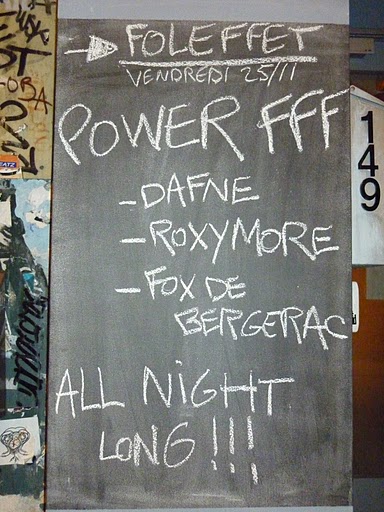 FOLEFFET
VENDREDI 25/11
POWER FFF
- DAFNE
- ROXYMORE
- FOX DE
BERGERAC
ALL NiGHT
LONG !!!
149